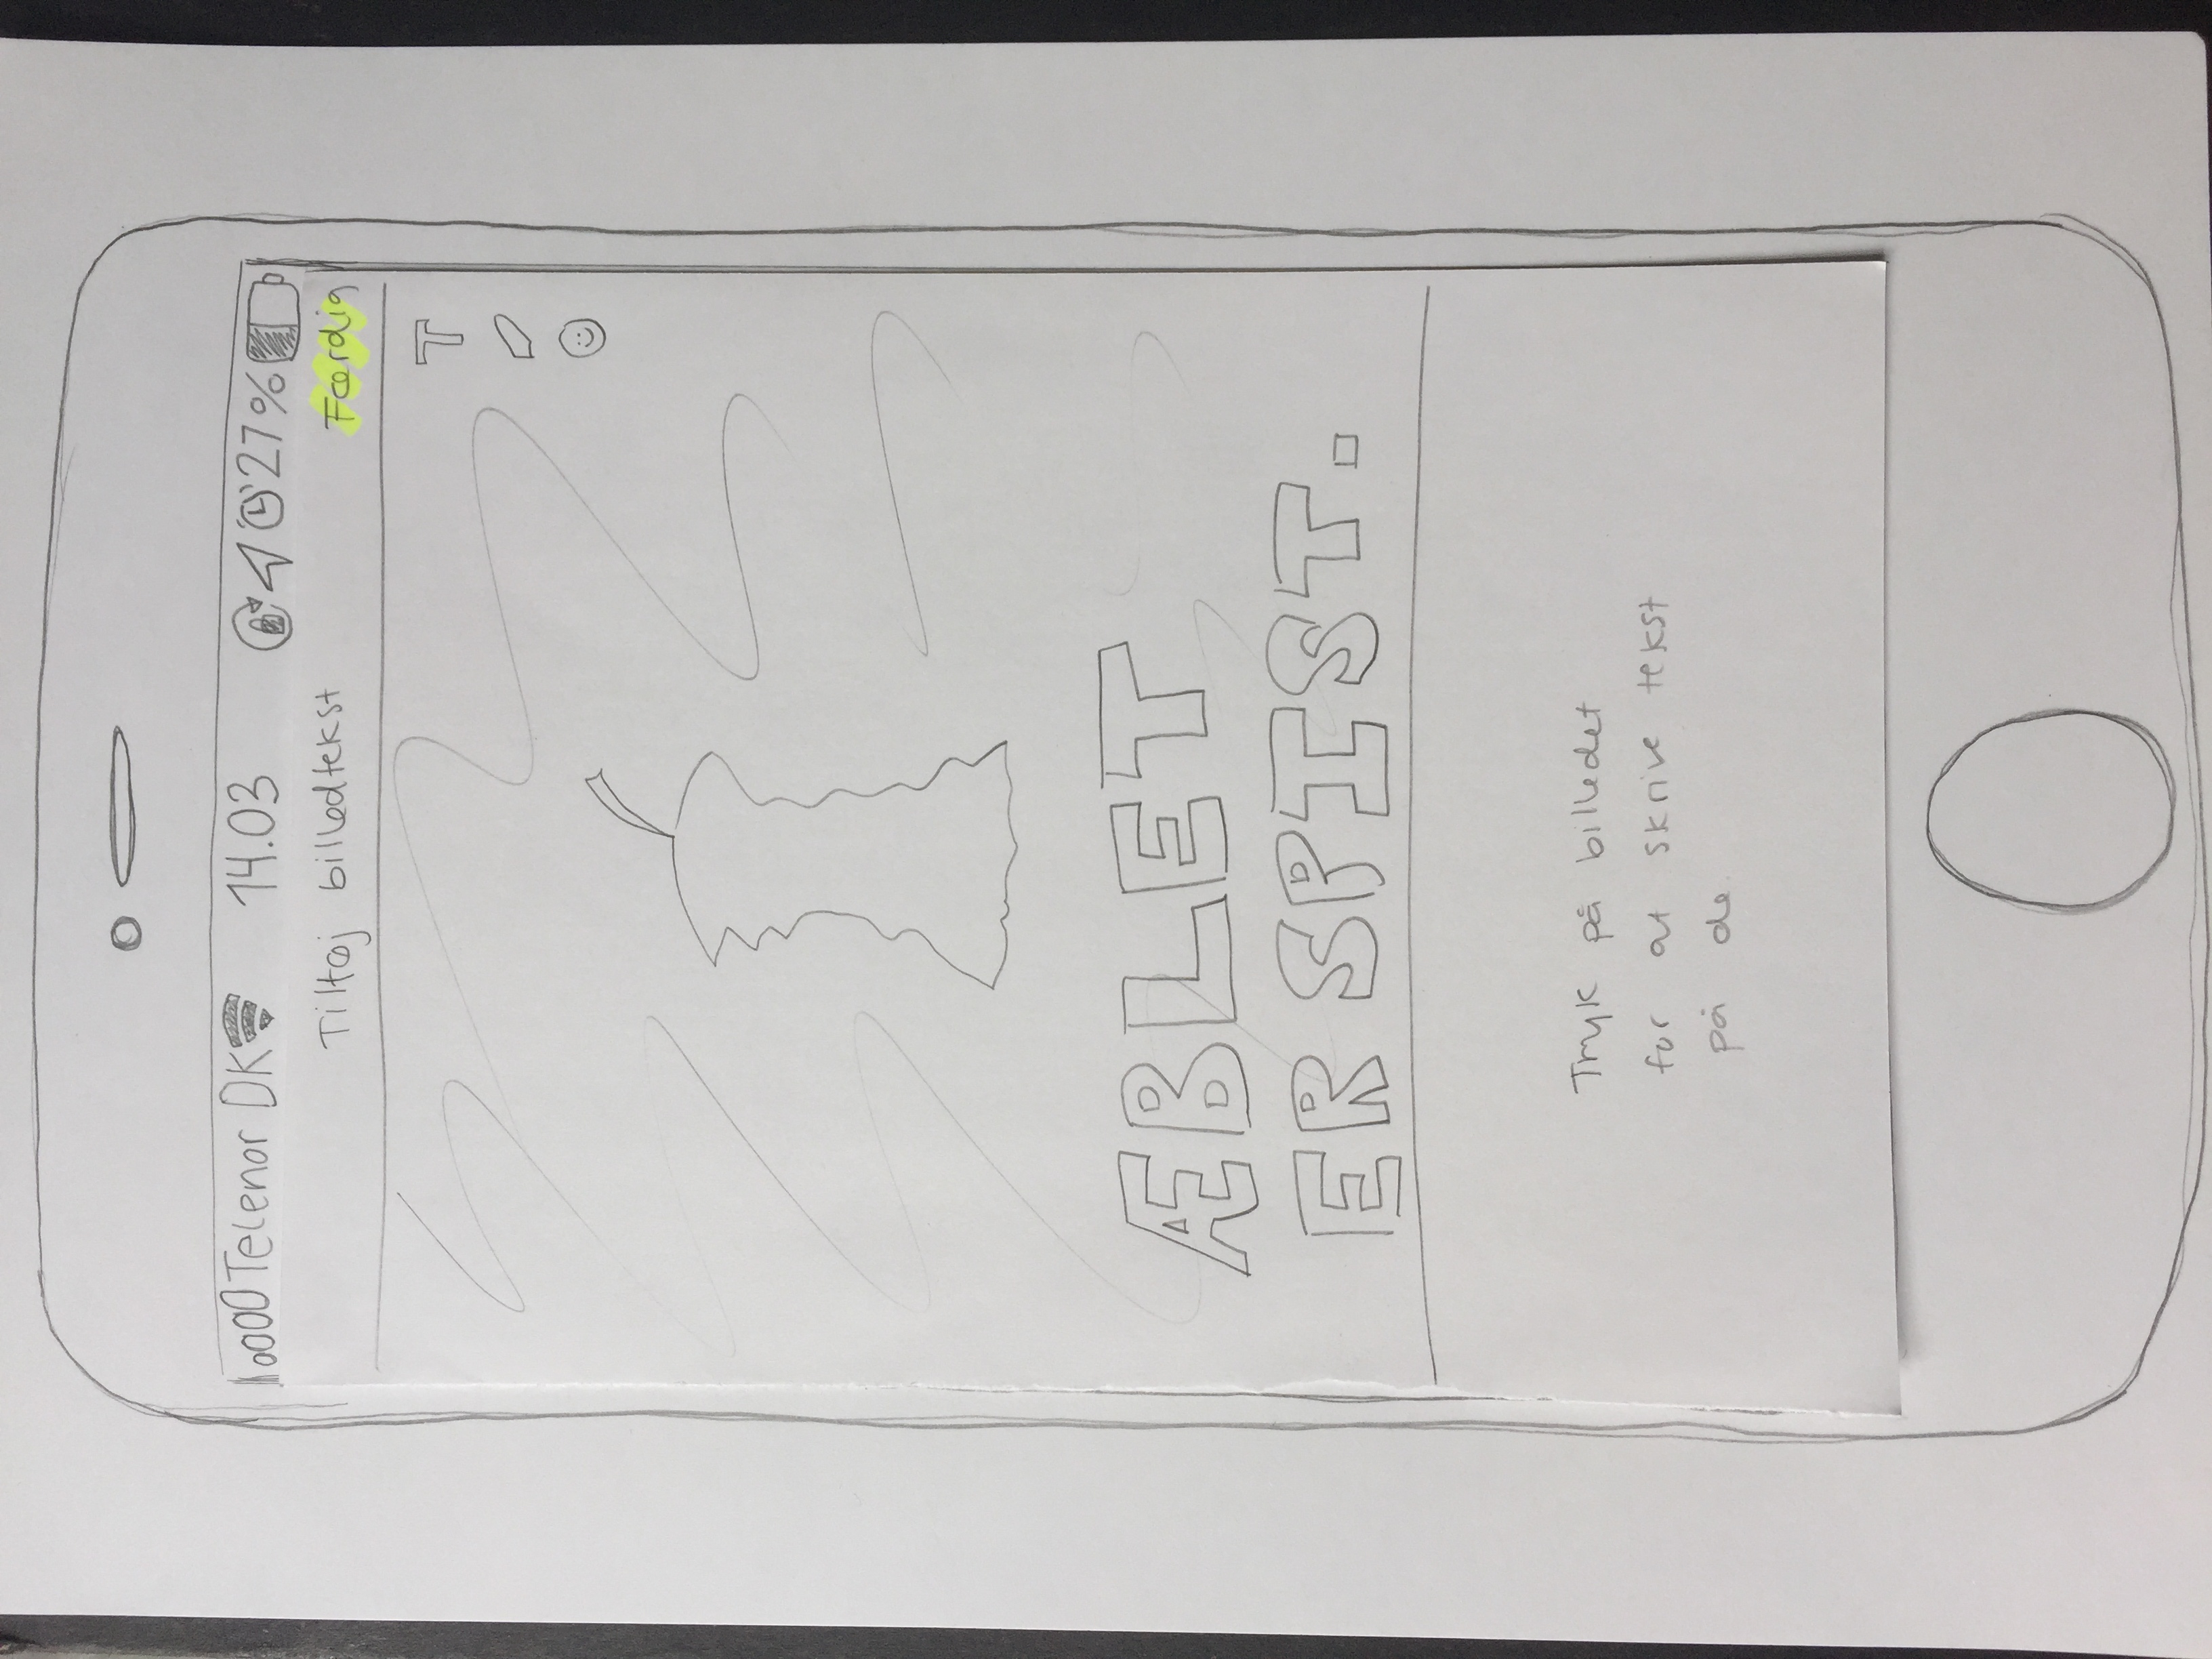 Telenor DK 14.03 27%
Tilføj billedtekst Færdig
T
ÆBLET
ER SPIST.
Tryk på billedet
for at skrive tekst
på de